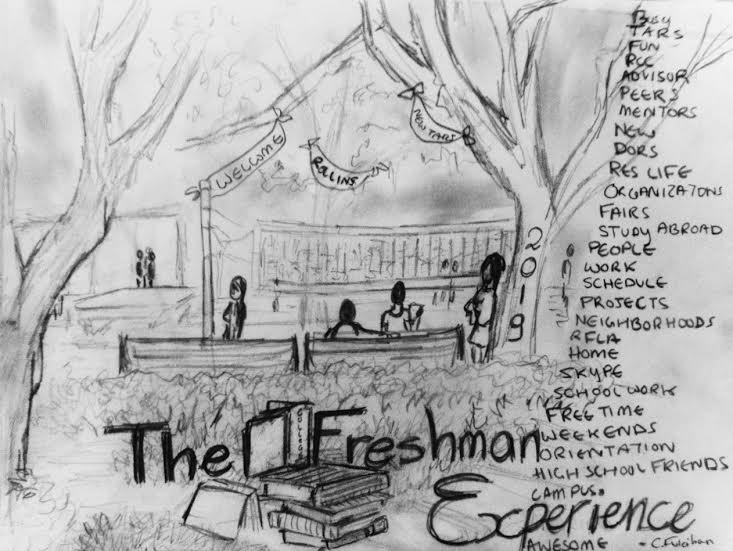 WELCOME
ROLLINS
NEW TARS
2019
BUSY
TARS
FUN
RCC
ADVISOR
PEERS
MENTORS
NEW
DORS
RES LIFE
ORGANIZATONS
FAIRS
STUDY ABROAD
PEOPLE
WORK
SCHEDULE
PROJECTS
NEIGHBORHOODS
RFLA
HOME
SKYPE
SCHOOL WORK
FREE TIME
WEEKENDS
ORIENTATION
HIGH SCHOOL FRIENDS
CAMPUS
AWESOME
COLLEGE
The Freshman
Experience